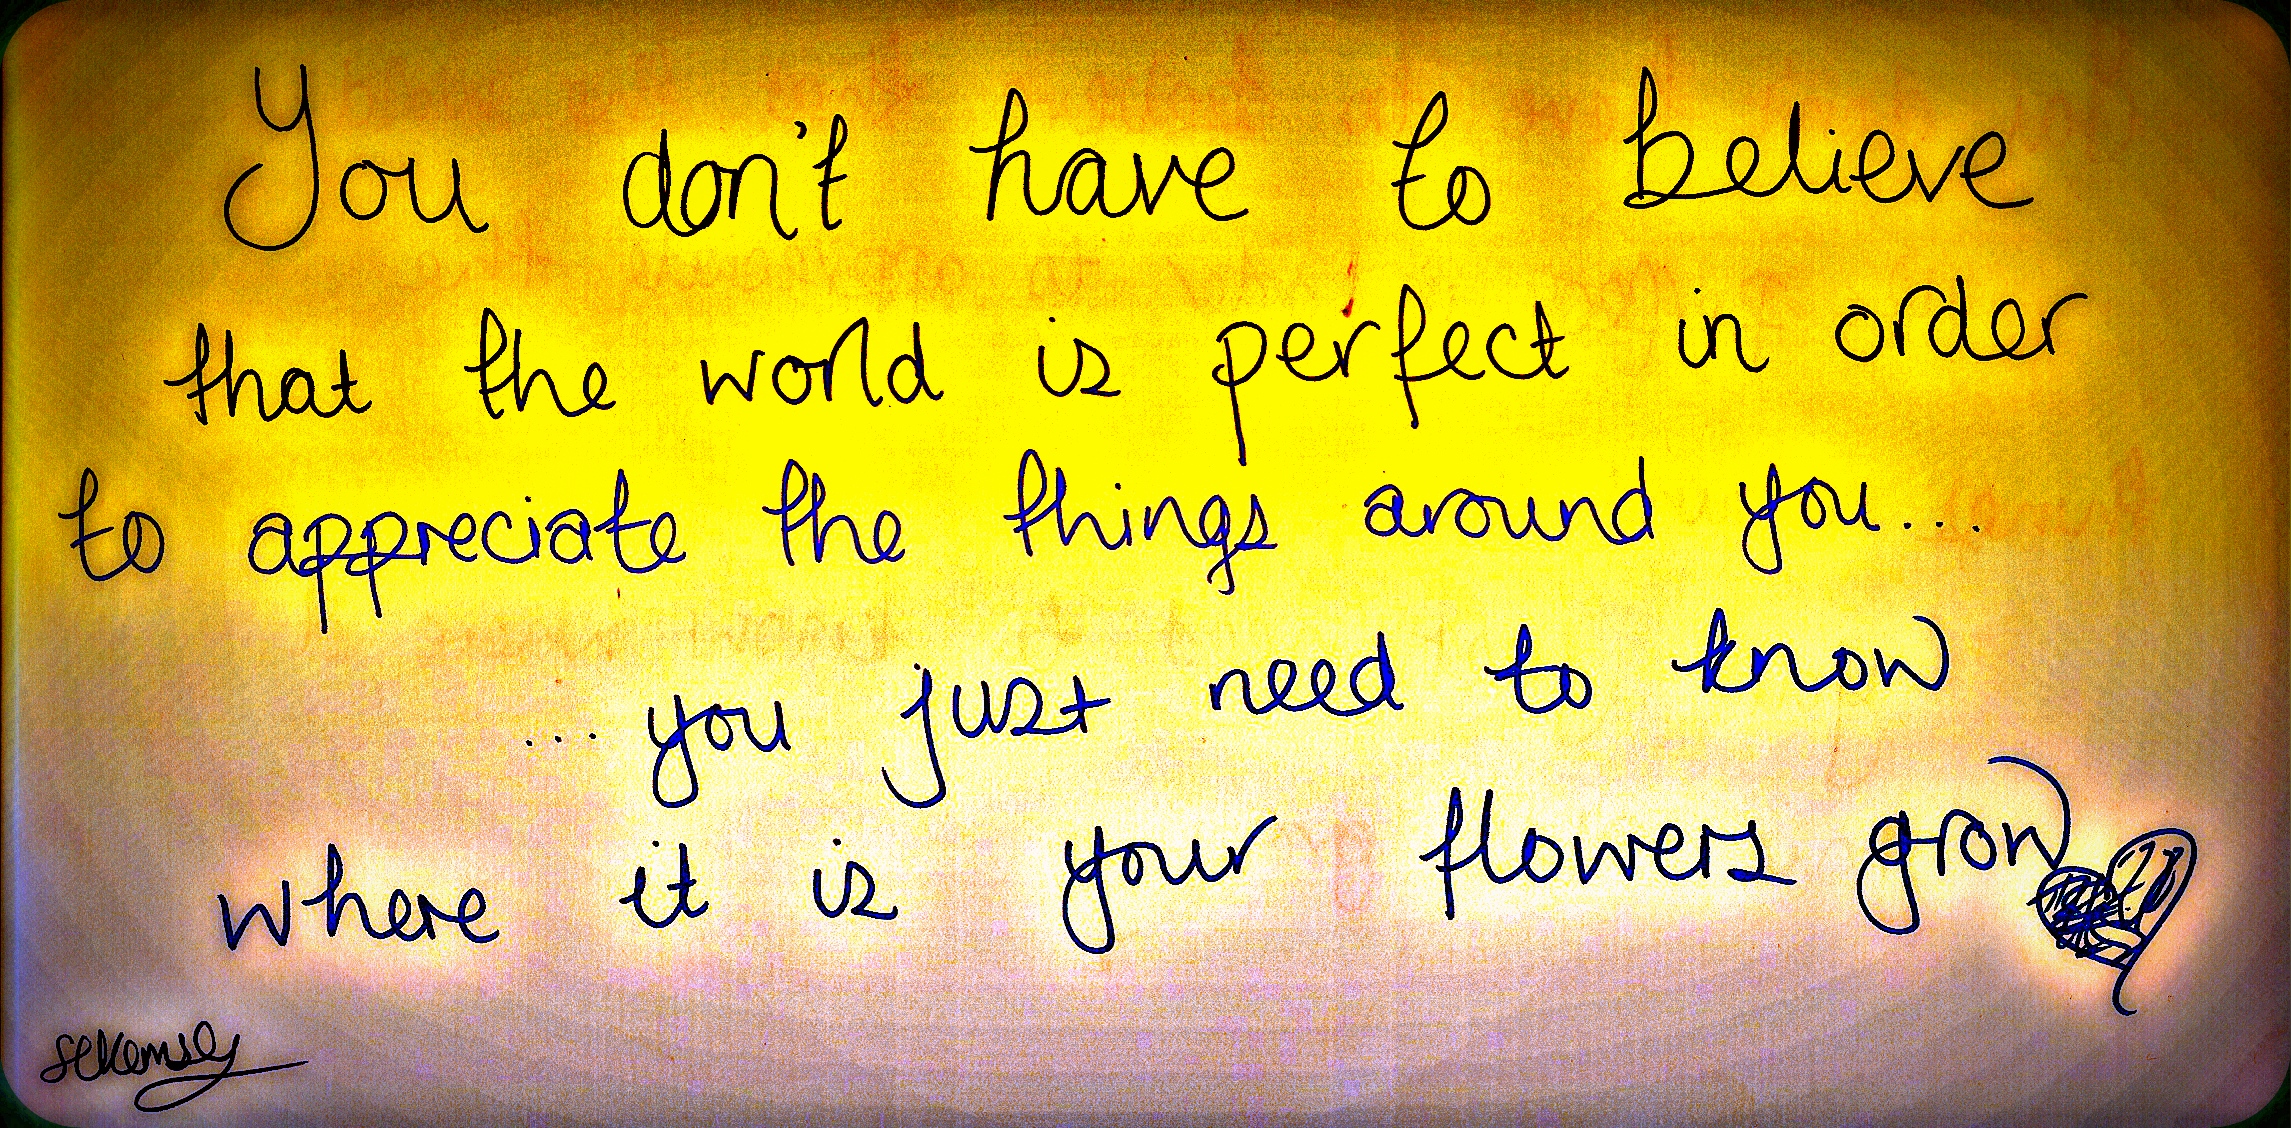 You don't have to believe
that the world is perfect in order
to appreciate the things around you...
... you just need to know
where it is your flowers grow